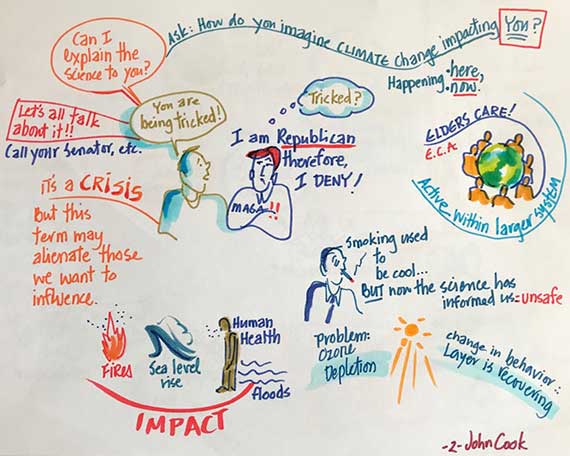 Ask: How do you imagine CLIMATE change impacting You?
Happening • here,
• now.
Can I
explain the
science to you?
Let's all talk
about it!!
Call your Senator, etc.
You are
being tricked!
Tricked?
I am Republican
therefore,
I DENY!
MAGA!!
ELDERS CARE!
E.C.A
Active within larger system
it's a CRISIS
But this
term may
alienate those
we want to
influence.
Smoking used
to
be cool...
BUT now the science has
informed us = unsafe
Fires
Sea level
rise
Human
Health
floods
IMPACT
Problem:
Ozone
Depletion
change in behavior::
Layer is recovering
-2- John Cook